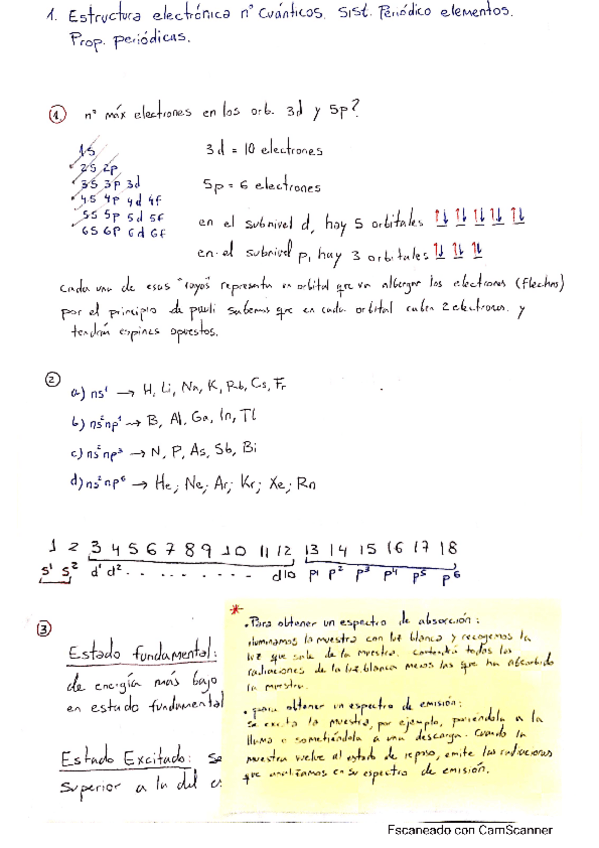 1. Estructura electrónica nº Cuánticos. Sist. Periódico elementos.
Prop. periódicas.
① nº máx electrones en los orb. 3d y 5p?
1s
2s 2p
3s 3p 3d
4s 4p 4d 4f
5s 5p 5d 5f
6s 6p 6d 6f
3d = 10 electrones
5p = 6 electrones
en el subnivel d, hay 5 orbitales ↑↓ ↑↓ ↑↓ ↑↓ ↑↓
en el subnivel p, hay 3 orbitales ↑↓ ↑↓ ↑↓
Cada una de esas "rayas" representa un orbital que va albergar los electrones (flechas)
por el principio de pauli sabemos que en cada orbital caben 2 electrones. y
tendrán espines opuestos.
②
a) ns¹ → H, Li, Na, K, Rb, Cs, Fr
b) ns²np¹ → B, Al, Ga, In, Tl
c) ns²np³ → N, P, As, Sb, Bi
d) ns²np⁶ → He; Ne; Ar; Kr; Xe; Rn
1 2 3 4 5 6 7 8 9 10 11 12 13 14 15 16 17 18
s¹ s² d¹ d² . . . . . . . . . d10 p1 p² p³ p⁴ p⁵ p⁶
③
Estado fundamental:
de energía más bajo
en estado fundamental
Estado Excitado: se
Superior a la del
* • Para obtener un espectro de absorción:
iluminamos la muestra con luz blanca y recogemos la
luz que sale de la muestra. Contendrá todas las
radiaciones de la luz blanca menos las que ha absorbido
la muestra.
• para obtener un espectro de emisión:
se excita la muestra, por ejemplo, poniéndola a la
llama o sometiéndola a una descarga. Cuando la
muestra vuelve al estado de reposo, emite las radiaciones
que analizamos en su espectro de emisión.
Escaneado con CamScanner